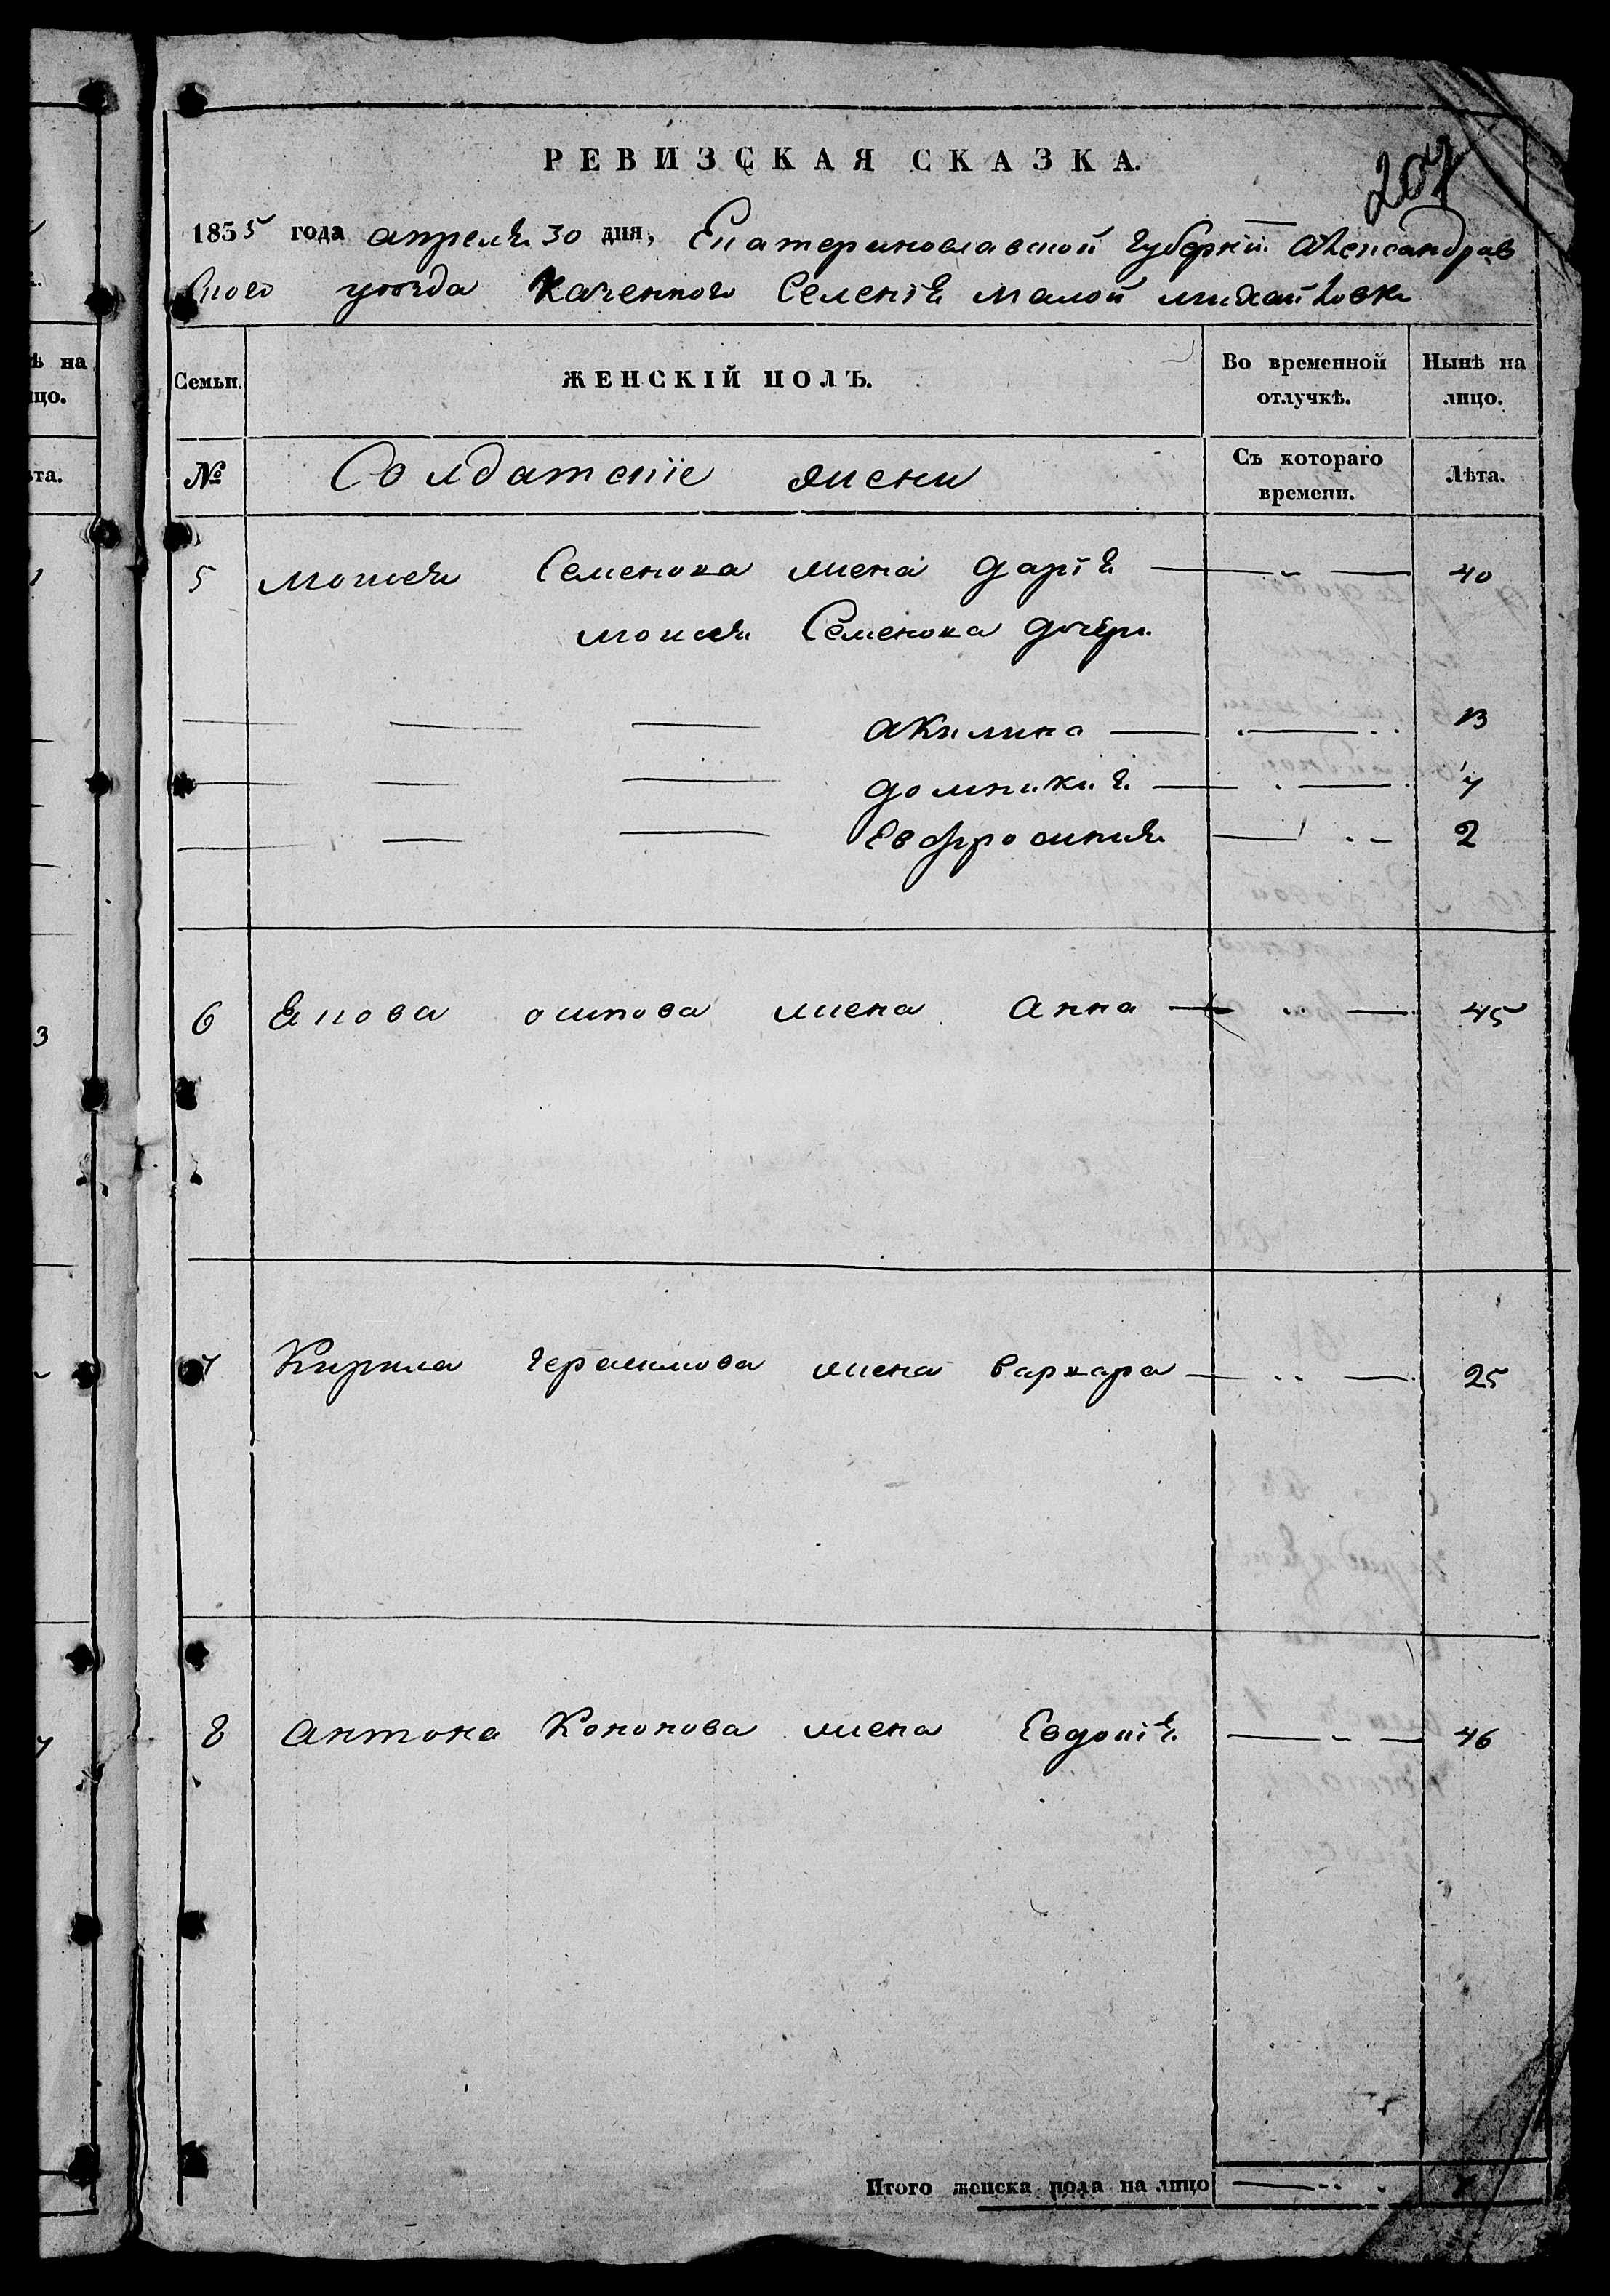 РЕВИЗСКАЯ СКАЗКА.
207
1835 года апреля 30 дня, Екатериновлавской Губерніи Александров
ского уезда Казенного Селенія малой михайловки
Семьи. ЖЕНСКІЙ ПОЛЪ. Во временной отлучкѣ. Нынѣ на лицо.
№ Солдатскіе жени Съ котораго времени. Лѣта.
5 моисея Семенова жена дарія 40
моисея Семенова дочери
акилина 13
домникия 7
Евфросиния 2
6 осипова жена Анна 45
7 Кирила герасимова жена варвара 25
8 Антона Кононова жена Евдокія 46
Итого женска пола на лицо 7
ѣ на
цо.
та.
3